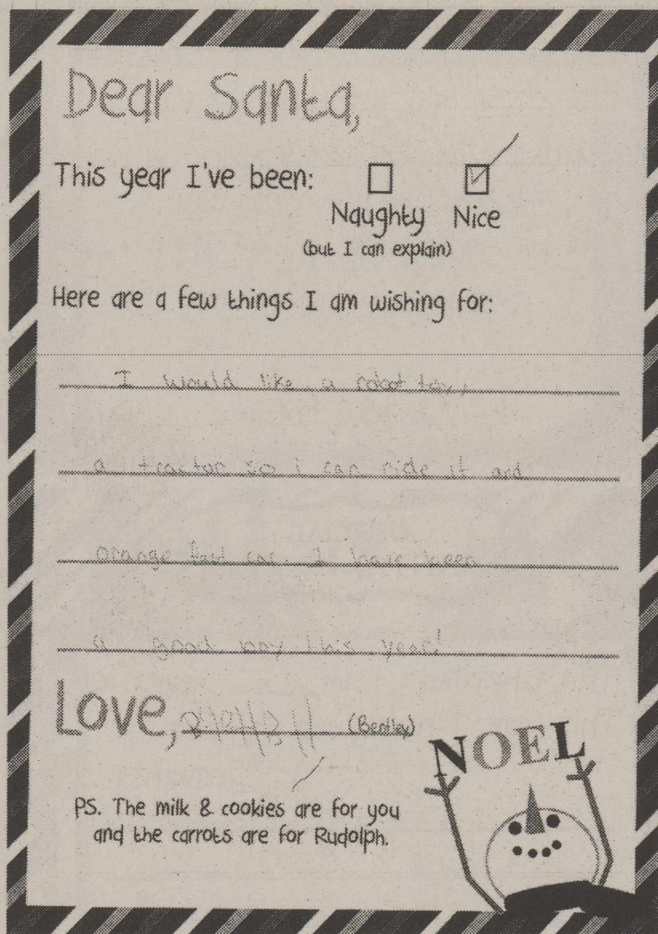 Dear Santa,
This year I've been:
Naughty Nice
(but I can explain)
Here are a few things I am wishing for:
I would like a robot toy,
a tractor so i can ride it and
orange fast car. I have been
a good boy this year!
Love, (Bentley)
NOEL
PS. The milk & cookies are for you
and the carrots are for Rudolph.